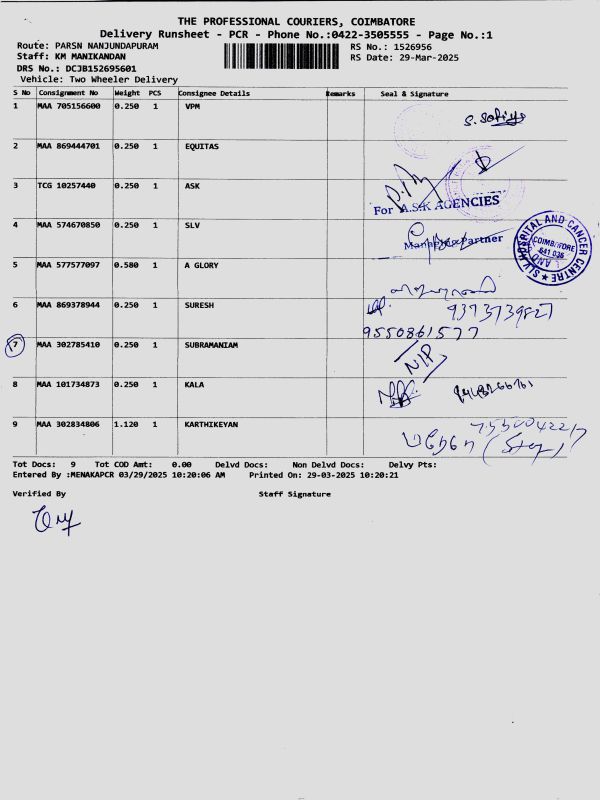 THE PROFESSIONAL COURIERS, COIMBATORE
Delivery Runsheet - PCR - Phone No.:0422-3505555 - Page No.:1
Route: PARSN NANJUNDAPURAM
RS No.: 1526956
Staff: KM MANIKANDAN
RS Date: 29-Mar-2025
DRS No.: DCJB152695601
Vehicle: Two Wheeler Delivery
S No Consignment No Weight PCS Consignee Details Remarks Seal & Signature
1 MAA 705156600 0.250 1 VPM
2 MAA 869444701 0.250 1 EQUITAS
3 TCG 10257440 0.250 1 ASK
For A.S.K AGENCIES
4 MAA 574670850 0.250 1 SLV
Managing Partner
HOSPITAL AND CANCER CENTRE
COIMBATORE
641 036
5 MAA 577577097 0.580 1 A GLORY
6 MAA 869378944 0.250 1 SURESH
9373739827
9550861577
7 MAA 302785410 0.250 1 SUBRAMANIAM
NIP
8 MAA 101734873 0.250 1 KALA
9 MAA 302834806 1.120 1 KARTHIKEYAN
Tot Docs: 9 Tot COD Amt: 0.00 Delvd Docs: Non Delvd Docs: Delvy Pts:
Entered By :MENAKAPCR 03/29/2025 10:20:06 AM Printed On: 29-03-2025 10:20:21
Verified By Staff Signature